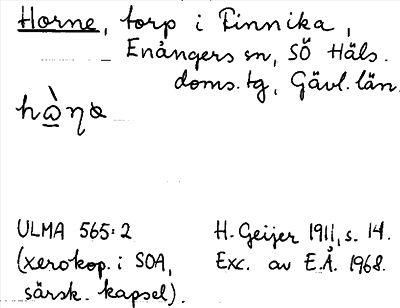 Horne, torp i Finnika,
Enångers sn, SÖ Häls.
doms.tg, Gävl. län.
ULMA 565:2
(xerokop. i SOA,
särsk. kapsel).
H. Geijer 1911, s. 14.
Exc. av E.Å. 1968.